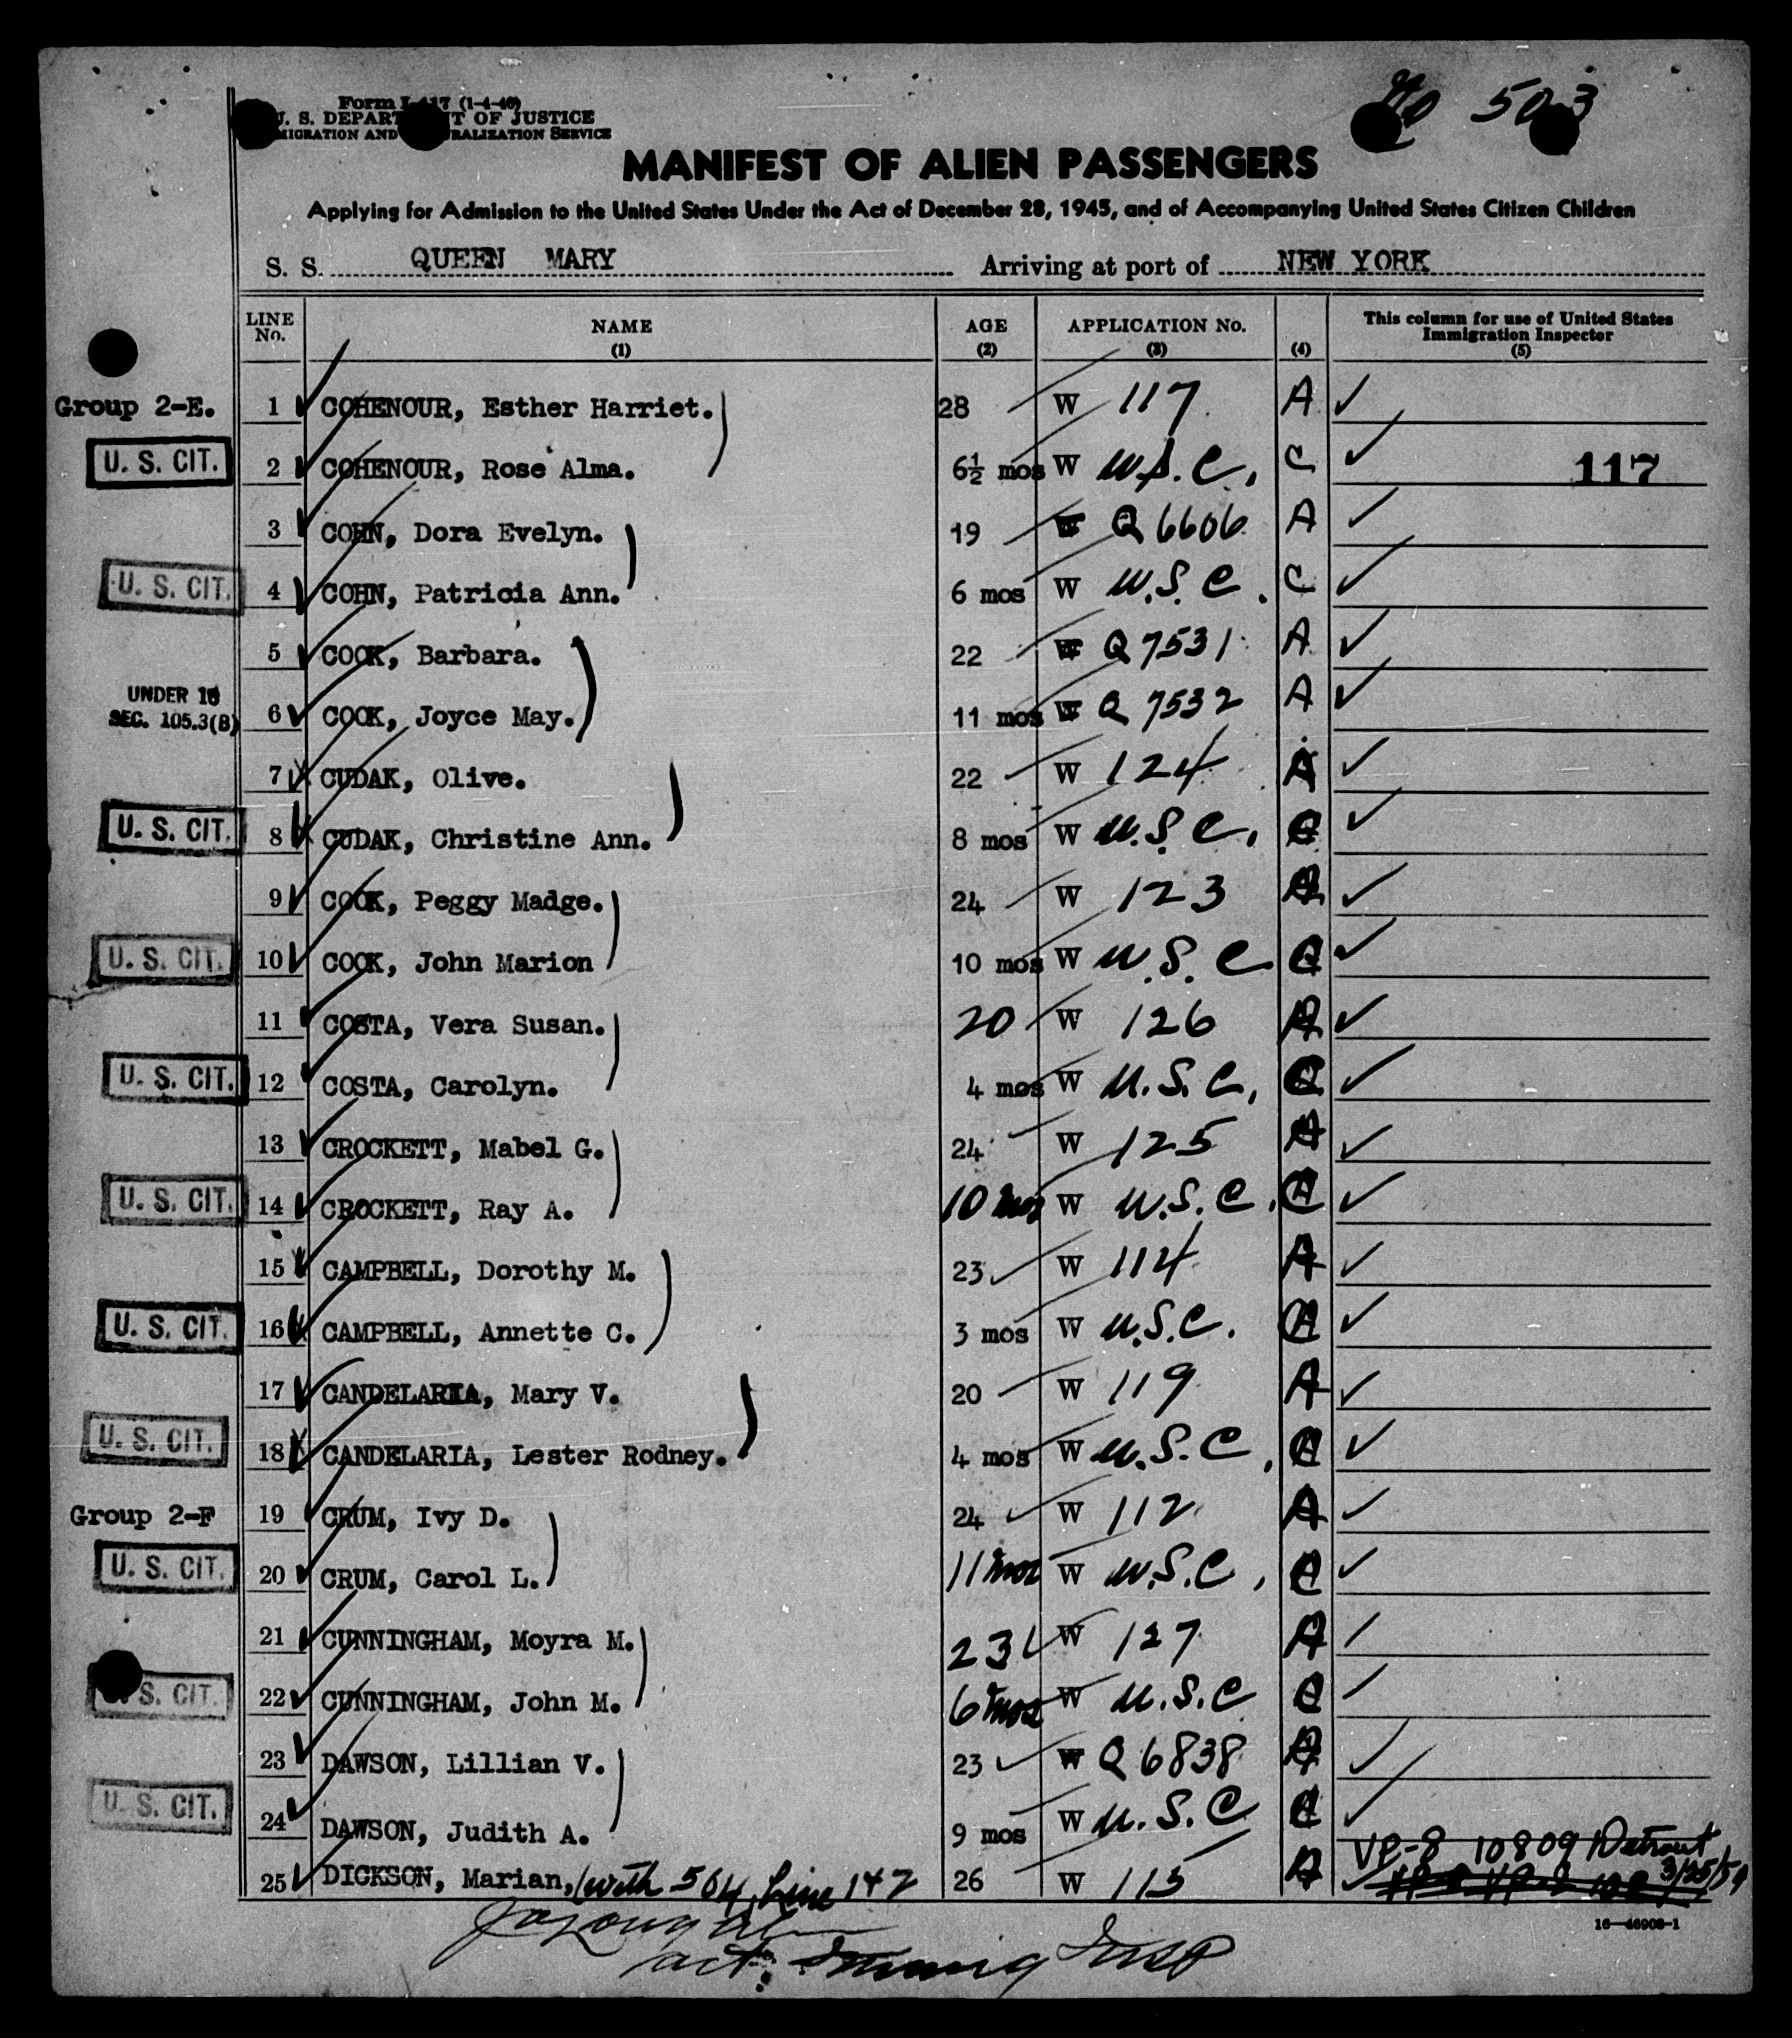 No 503
Form I-417 (1-4-46)
U. S. DEPARTMENT OF JUSTICE
IMMIGRATION AND NATURALIZATION SERVICE
MANIFEST OF ALIEN PASSENGERS
Applying for Admission to the United States Under the Act of December 28, 1945, and of Accompanying United States Citizen Children
S. S. QUEEN MARY Arriving at port of NEW YORK
LINE No. NAME (1) AGE (2) APPLICATION No. (3) (4) This column for use of United States Immigration Inspector (5)
Group 2-E. 1 COHENOUR, Esther Harriet. 28 W 117 A
U. S. CIT. 2 COHENOUR, Rose Alma. 6½ mos W U.S.C. C 117
3 COHN, Dora Evelyn. 19 W Q 6606 A
U. S. CIT. 4 COHN, Patricia Ann. 6 mos W U.S.C. C
5 COOK, Barbara. 22 W Q 7531 A
UNDER 16 SEC. 105.3(B) 6 COOK, Joyce May. 11 mos W Q 7532 A
7 CUDAK, Olive. 22 W 124 A
U. S. CIT. 8 CUDAK, Christine Ann. 8 mos W U.S.C. C
9 COOK, Peggy Madge. 24 W 123 A
U. S. CIT. 10 COOK, John Marion 10 mos W U.S.C C
11 COSTA, Vera Susan. 20 W 126 A
U. S. CIT. 12 COSTA, Carolyn. 4 mos W U.S.C. C
13 CROCKETT, Mabel G. 24 W 125 A
U. S. CIT. 14 CROCKETT, Ray A. 10 mos W U.S.C. C
15 CAMPBELL, Dorothy M. 23 W 114 A
U. S. CIT. 16 CAMPBELL, Annette C. 3 mos W U.S.C. C
17 CANDELARIA, Mary V. 20 W 119 A
U. S. CIT. 18 CANDELARIA, Lester Rodney. 4 mos W U.S.C. C
Group 2-F 19 CRUM, Ivy D. 24 W 112 A
U. S. CIT. 20 CRUM, Carol L. 11 mos W U.S.C. C
21 CUNNINGHAM, Moyra M. 23 W 127 A
U. S. CIT. 22 CUNNINGHAM, John M. 6 mos W U.S.C C
23 DAWSON, Lillian V. 23 W Q 6838 A
U. S. CIT. 24 DAWSON, Judith A. 9 mos W U.S.C C
VP-8 10809 Detroit 3/25/59
25 DICKSON, Marian, (with 504, Line 147 26 W 115 A
16—46908-1
act. Immig Insp